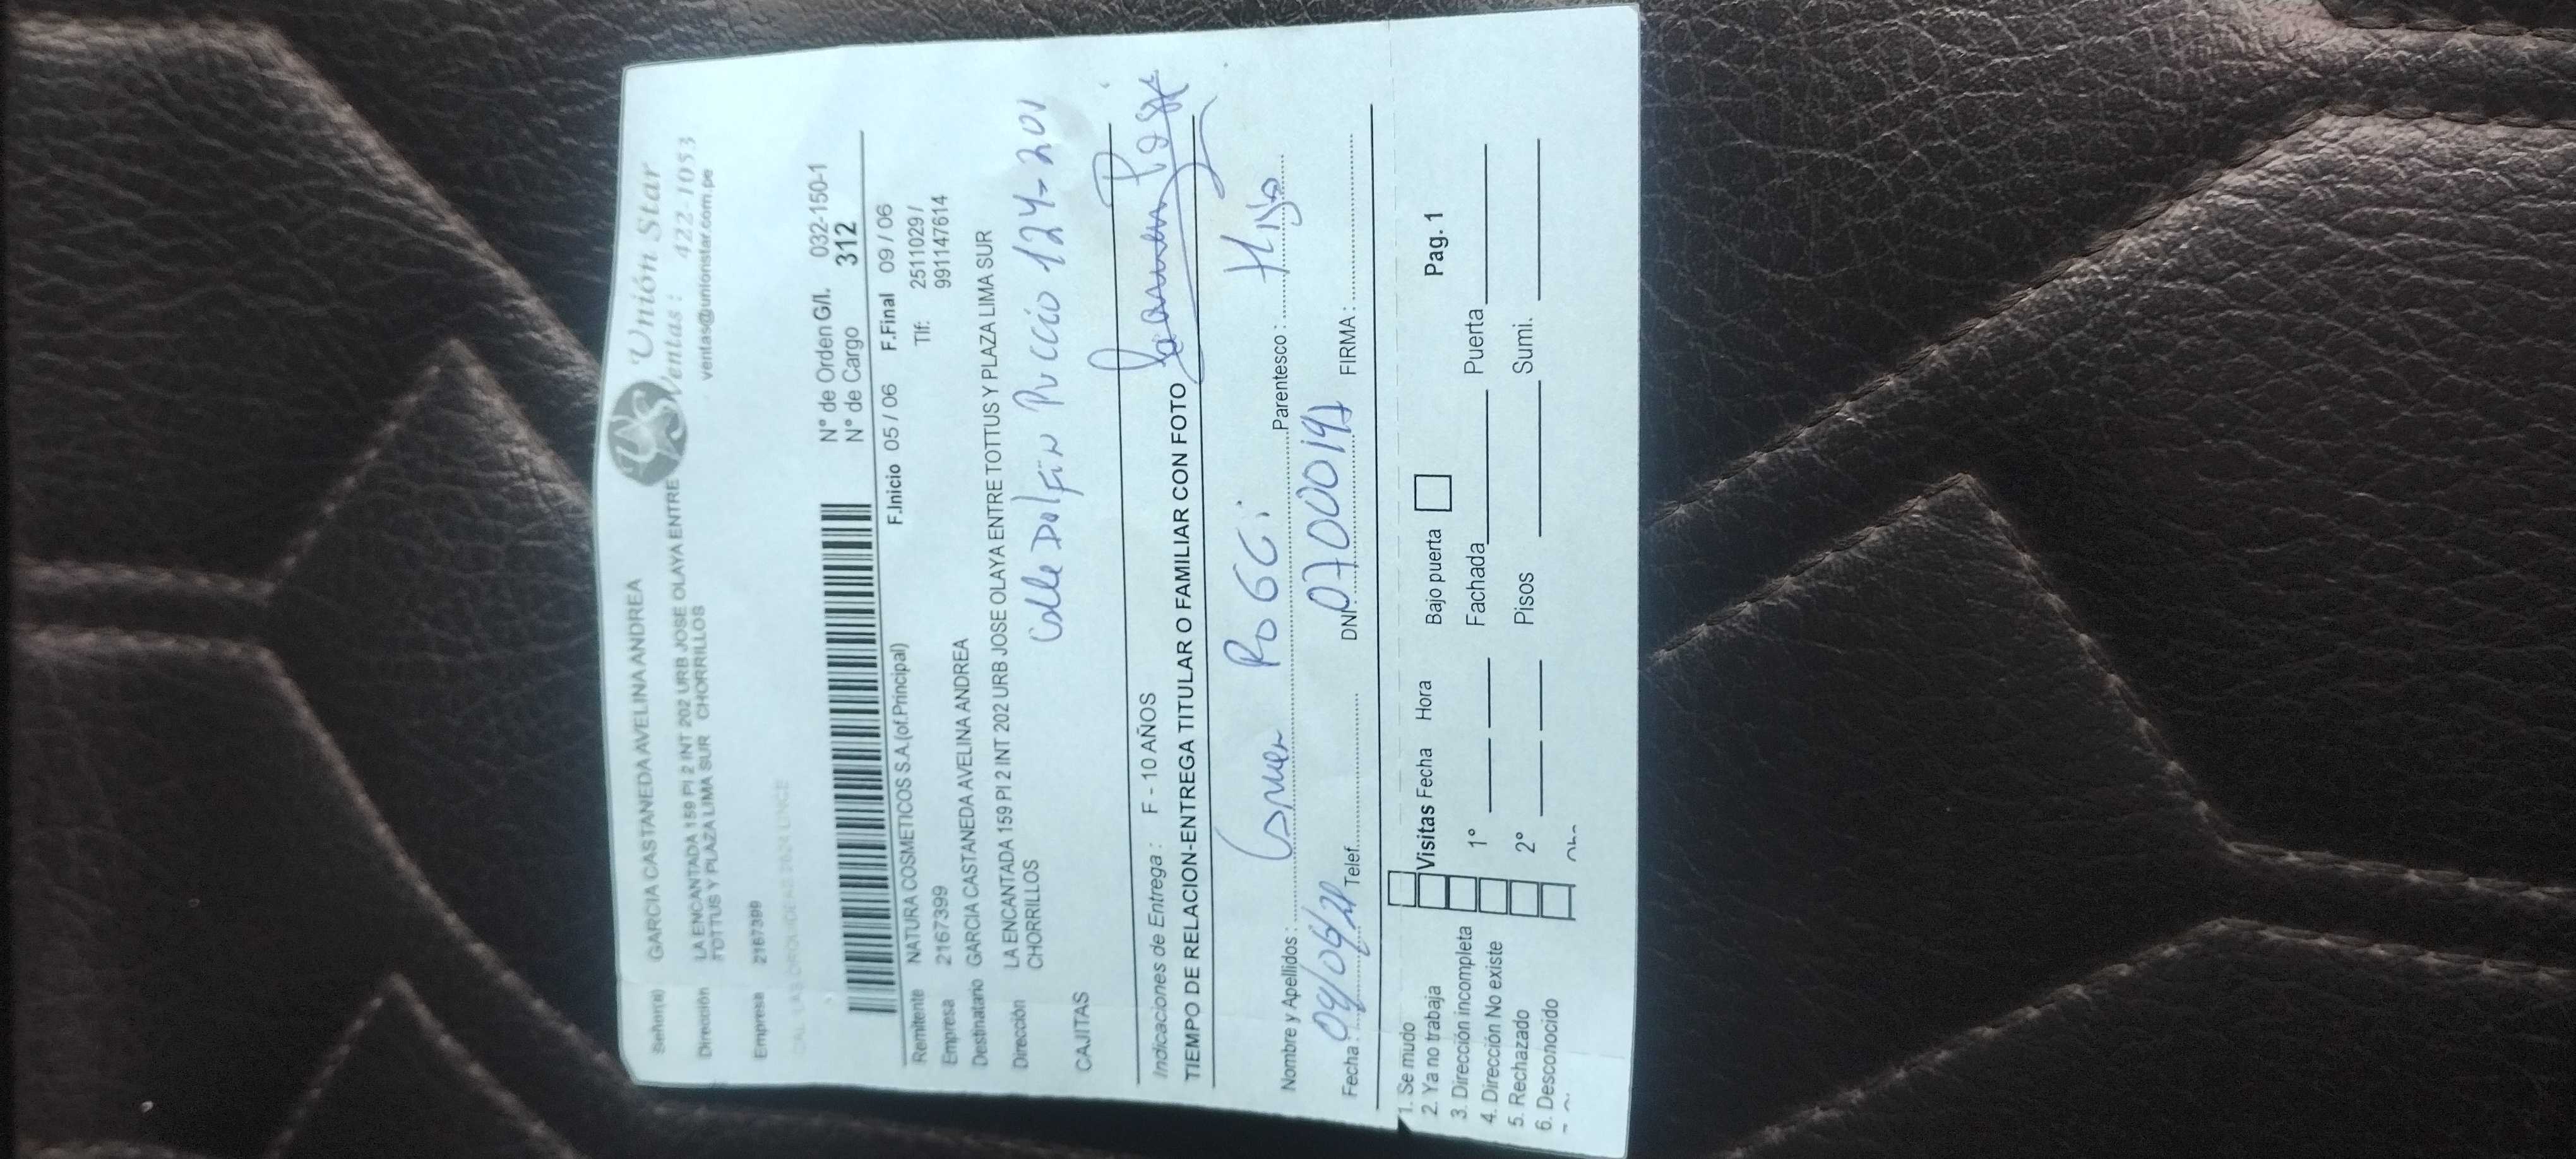 Señor(a) GARCIA CASTANEDA AVELINA ANDREA
Dirección LA ENCANTADA 159 PI 2 INT 202 URB JOSE OLAYA ENTRE
TOTTUS Y PLAZA LIMA SUR CHORRILLOS
Empresa 2167399
US Unión Star
Ventas : 422-1053
ventas@unionstar.com.pe
N° de Orden G/I. 032-150-1
N° de Cargo 312
F.Inicio 05 / 06 F.Final 09 / 06
Remitente NATURA COSMETICOS S.A.(of.Principal)
Tlf: 2511029 /
Empresa 2167399
991147614
Destinatario GARCIA CASTANEDA AVELINA ANDREA
Dirección LA ENCANTADA 159 PI 2 INT 202 URB JOSE OLAYA ENTRE TOTTUS Y PLAZA LIMA SUR
CHORRILLOS
Calle Delfin Puccio 124-201
CAJITAS
Indicaciones de Entrega : F - 10 AÑOS
TIEMPO DE RELACION-ENTREGA TITULAR O FAMILIAR CON FOTO
Nombre y Apellidos : Carmen POGGi Parentesco : Hija
Fecha : Telef. DNI. FIRMA :
1. Se mudo
2. Ya no trabaja
3. Dirección incompleta
4. Dirección No existe
5. Rechazado
6. Desconocido
Visitas Fecha Hora Bajo puerta Pag. 1
1° Fachada Puerta
2° Pisos Sumi.